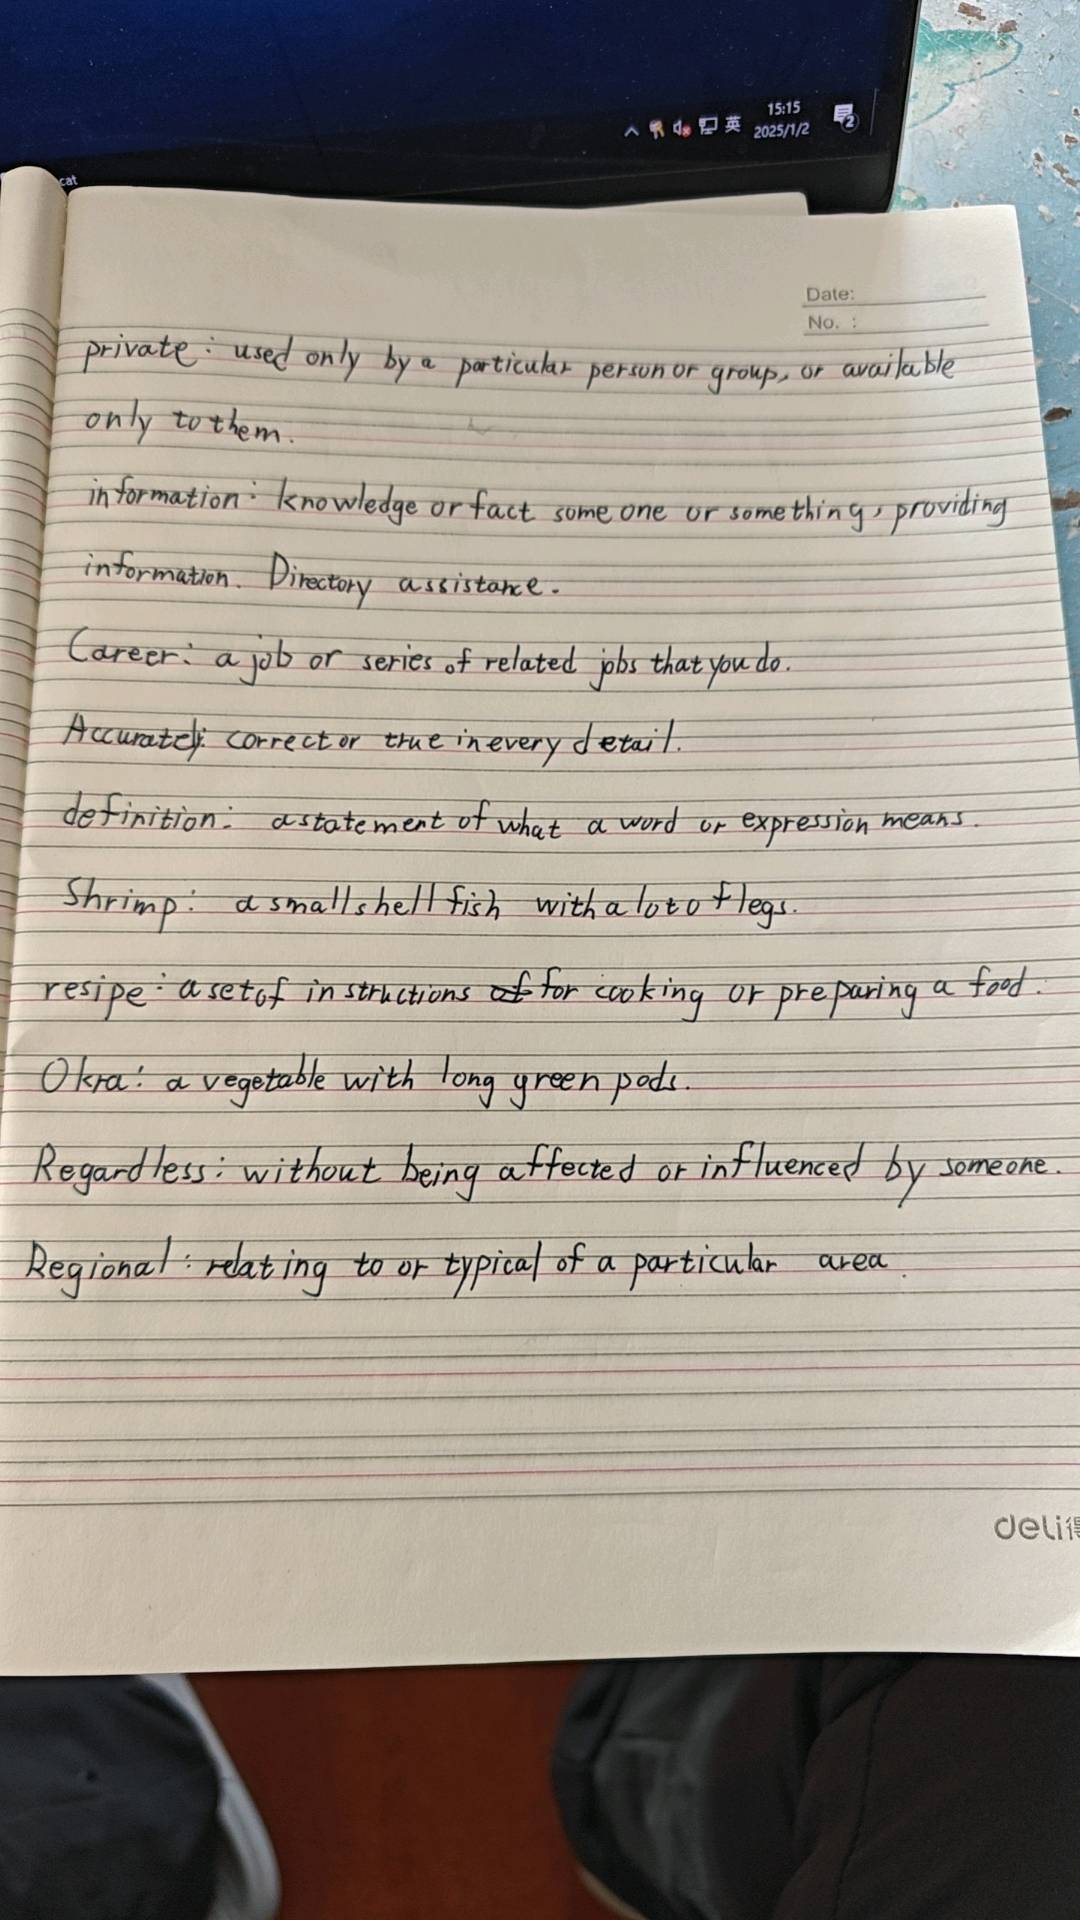 15:15
英
2025/1/2
2
cat
Date:
No. :
private: used only by a particular person or group, or available
only to them.
information: knowledge or fact some one or something, providing
information. Directory assistance.
Career: a job or series of related jobs that you do.
Accurately: correct or true in every detail.
definition: a statement of what a word or expression means.
Shrimp: a small shell fish with a lot of legs.
resipe: a set of instructions of for cooking or preparing a food.
Okra: a vegetable with long green pods.
Regardless: without being affected or influenced by someone.
Regional: relating to or typical of a particular area.
deli